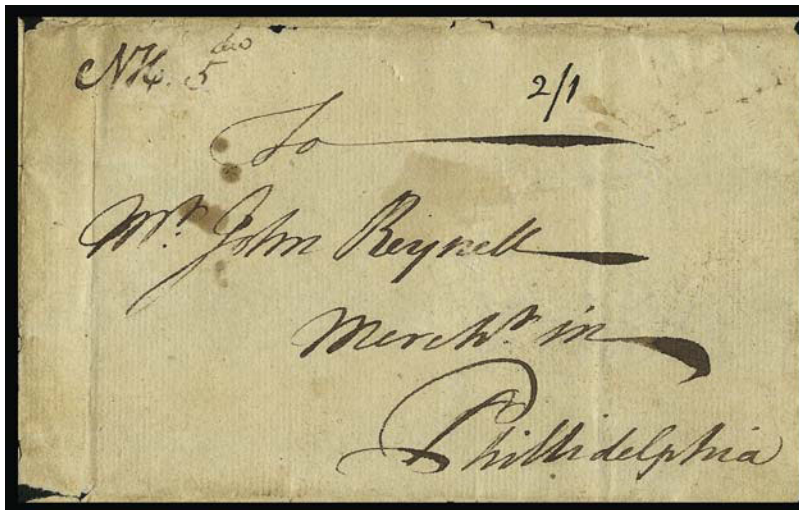 NK. 5 dw 2/1
To
Mr. John Reynell
Mercht. in
Phillidelphia